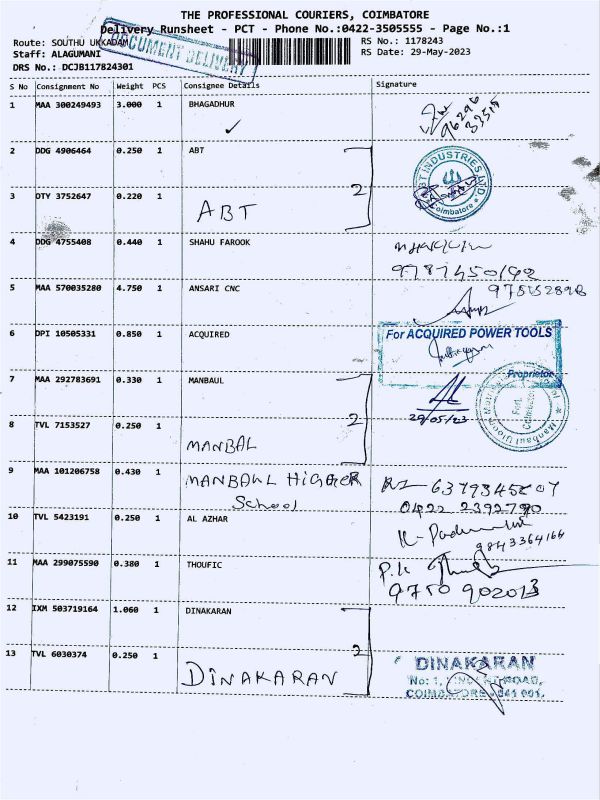 THE PROFESSIONAL COURIERS, COIMBATORE
Delivery Runsheet - PCT - Phone No.:0422-3505555 - Page No.:1
Route: SOUTHU UKKADAM
RS No.: 1178243
Staff: ALAGUMANI
RS Date: 29-May-2023
DRS No.: DCJB117824301
DOCUMENT DELIVERY
S No Consignment No Weight PCS Consignee Details Signature
1 MAA 300249493 3.000 1 BHAGADHUR
96296
2 DDG 4906464 0.250 1 ABT
2
ABT INDUSTRIES LTD
Coimbatore
3 DTY 3752647 0.220 1
ABT
4 DDG 4755408 0.440 1 SHAHU FAROOK
5 MAA 570035280 4.750 1 ANSARI CNC
6 DPI 10505331 0.850 1 ACQUIRED
For ACQUIRED POWER TOOLS
Proprietor
7 MAA 292783691 0.330 1 MANBAUL
2
29/05/23
Fort
Coimbatore
8 TVL 7153527 0.250 1
MANBAL
9 MAA 101206758 0.430 1 MANBAUL HIGHER
School
0422 2392790
10 TVL 5423191 0.250 1 AL AZHAR
9843364164
11 MAA 299075590 0.380 1 THOUFIC
P.K
9750 902013
12 IXM 503719164 1.060 1 DINAKARAN
2
13 TVL 6030374 0.250 1
DINAKARAN
DINAKARAN
No: 1, ROAD,
COIMBATORE - 641 001.